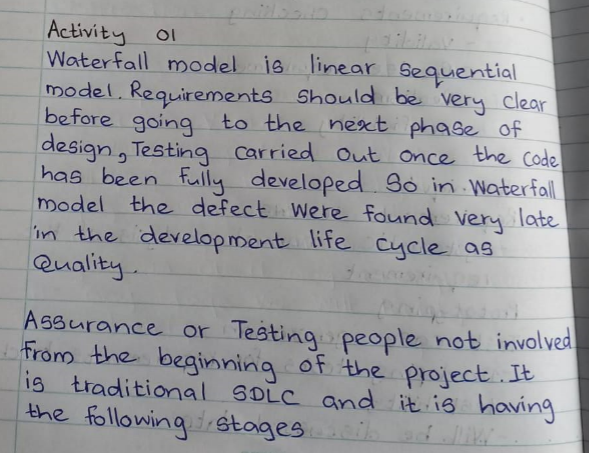 Activity 01
Waterfall model is linear sequential
model. Requirements should be very clear
before going to the next phase of
design, Testing carried out once the code
has been fully developed. So in Waterfall
model the defect were found very late
in the development life cycle as
Quality.
Assurance or Testing people not involved
from the beginning of the project. It
is traditional SDLC and it is having
the following stages